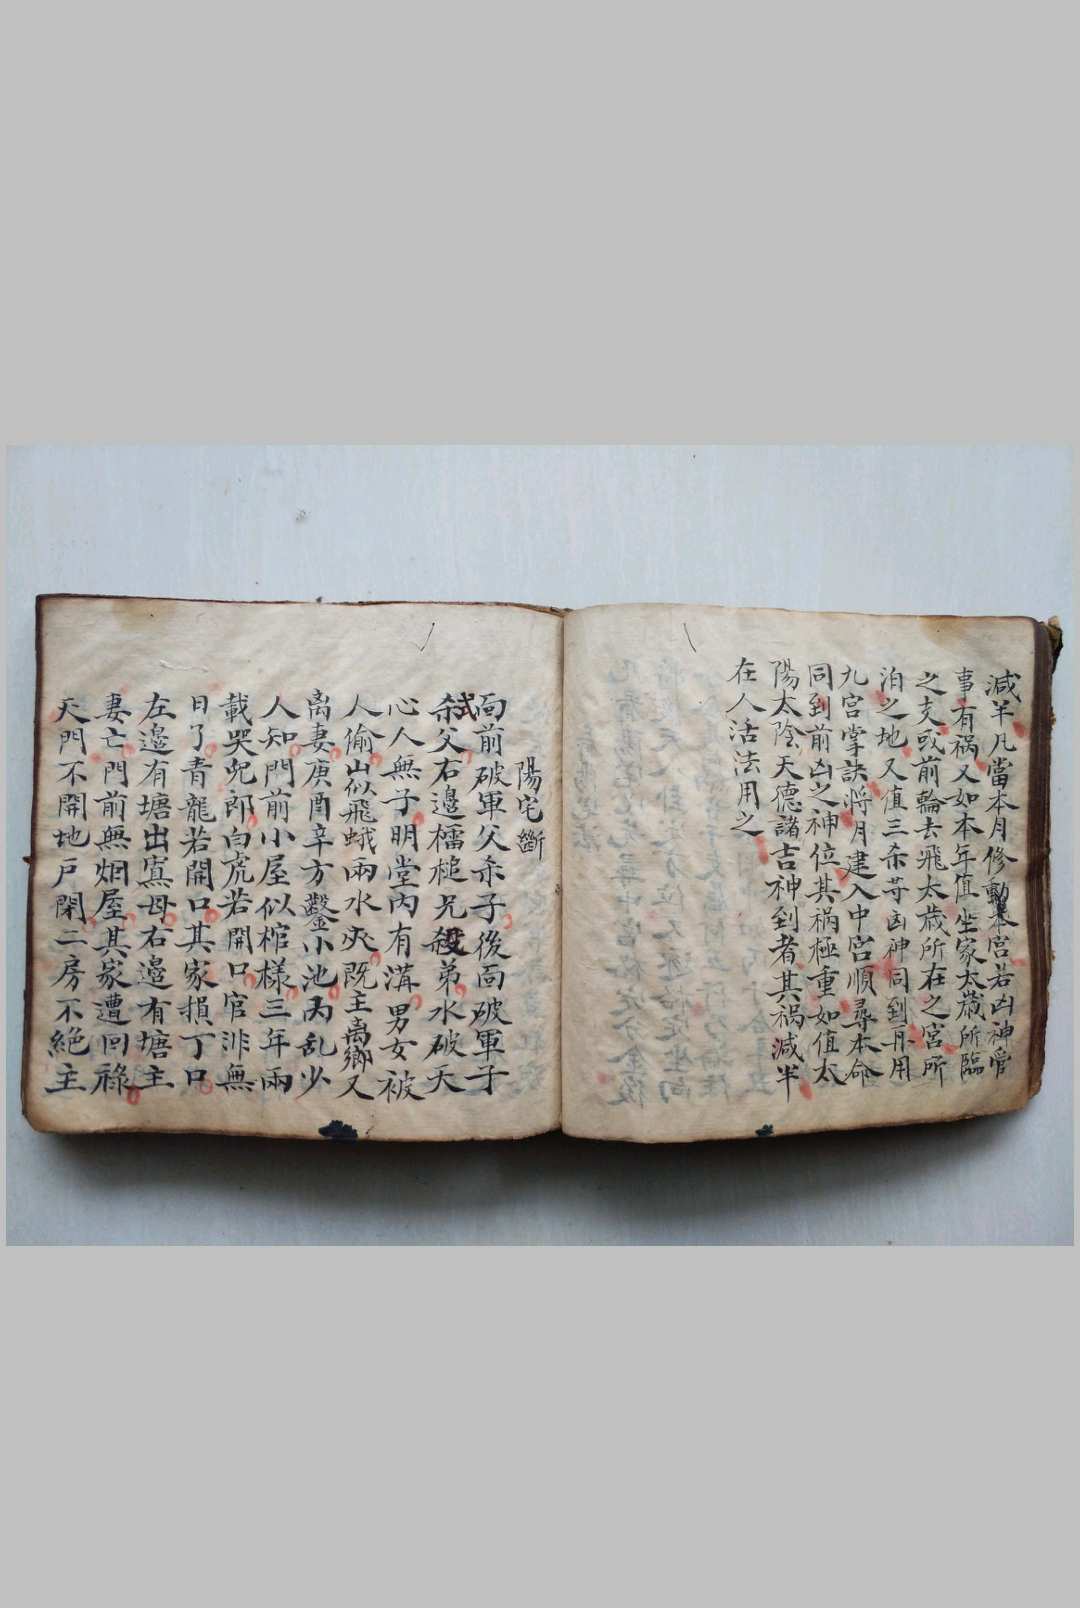 減半凡當本月修動宮若凶神管
事有禍又如本年值坐家太歲所臨
之支或前輪去飛太歲所在之宮所
泊之地又值三杀等凶神同到再用
九宮掌訣將月建入中宮順尋本命
同到前凶之神位其祸極重如值太
陽太陰天德諸吉神到者其祸減半
在人活法用之
陽宅斷
面前破軍父杀子後面破軍子
弑杀父右邊檽槌兄殺弟水破天
心人無子明堂內有溝男女被
人偷山似飛蛾兩水夾既主离鄉又
离妻庚酉辛方鑿小池丙乱少
人知門前小屋似棺樣三年兩
載哭兒郎白虎若開口官洲無
日了青龍若開口其家損丁口
左邊有塘出寡母右邊有塘主
妻亡門前無烟屋其家遭回祿
天門不開地戶閑二房不絕主